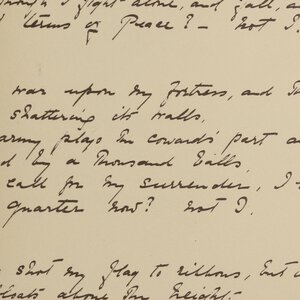 I fight alone, and fall, an
terms of Peace? — not I.
war upon my fortress, and Th
shattering its walls.
army plays the coward's part a
d by a Thousand balls,
call for my surrender, I
quarter now? not I.
shot my flag to ribbons, but i
floats above the height